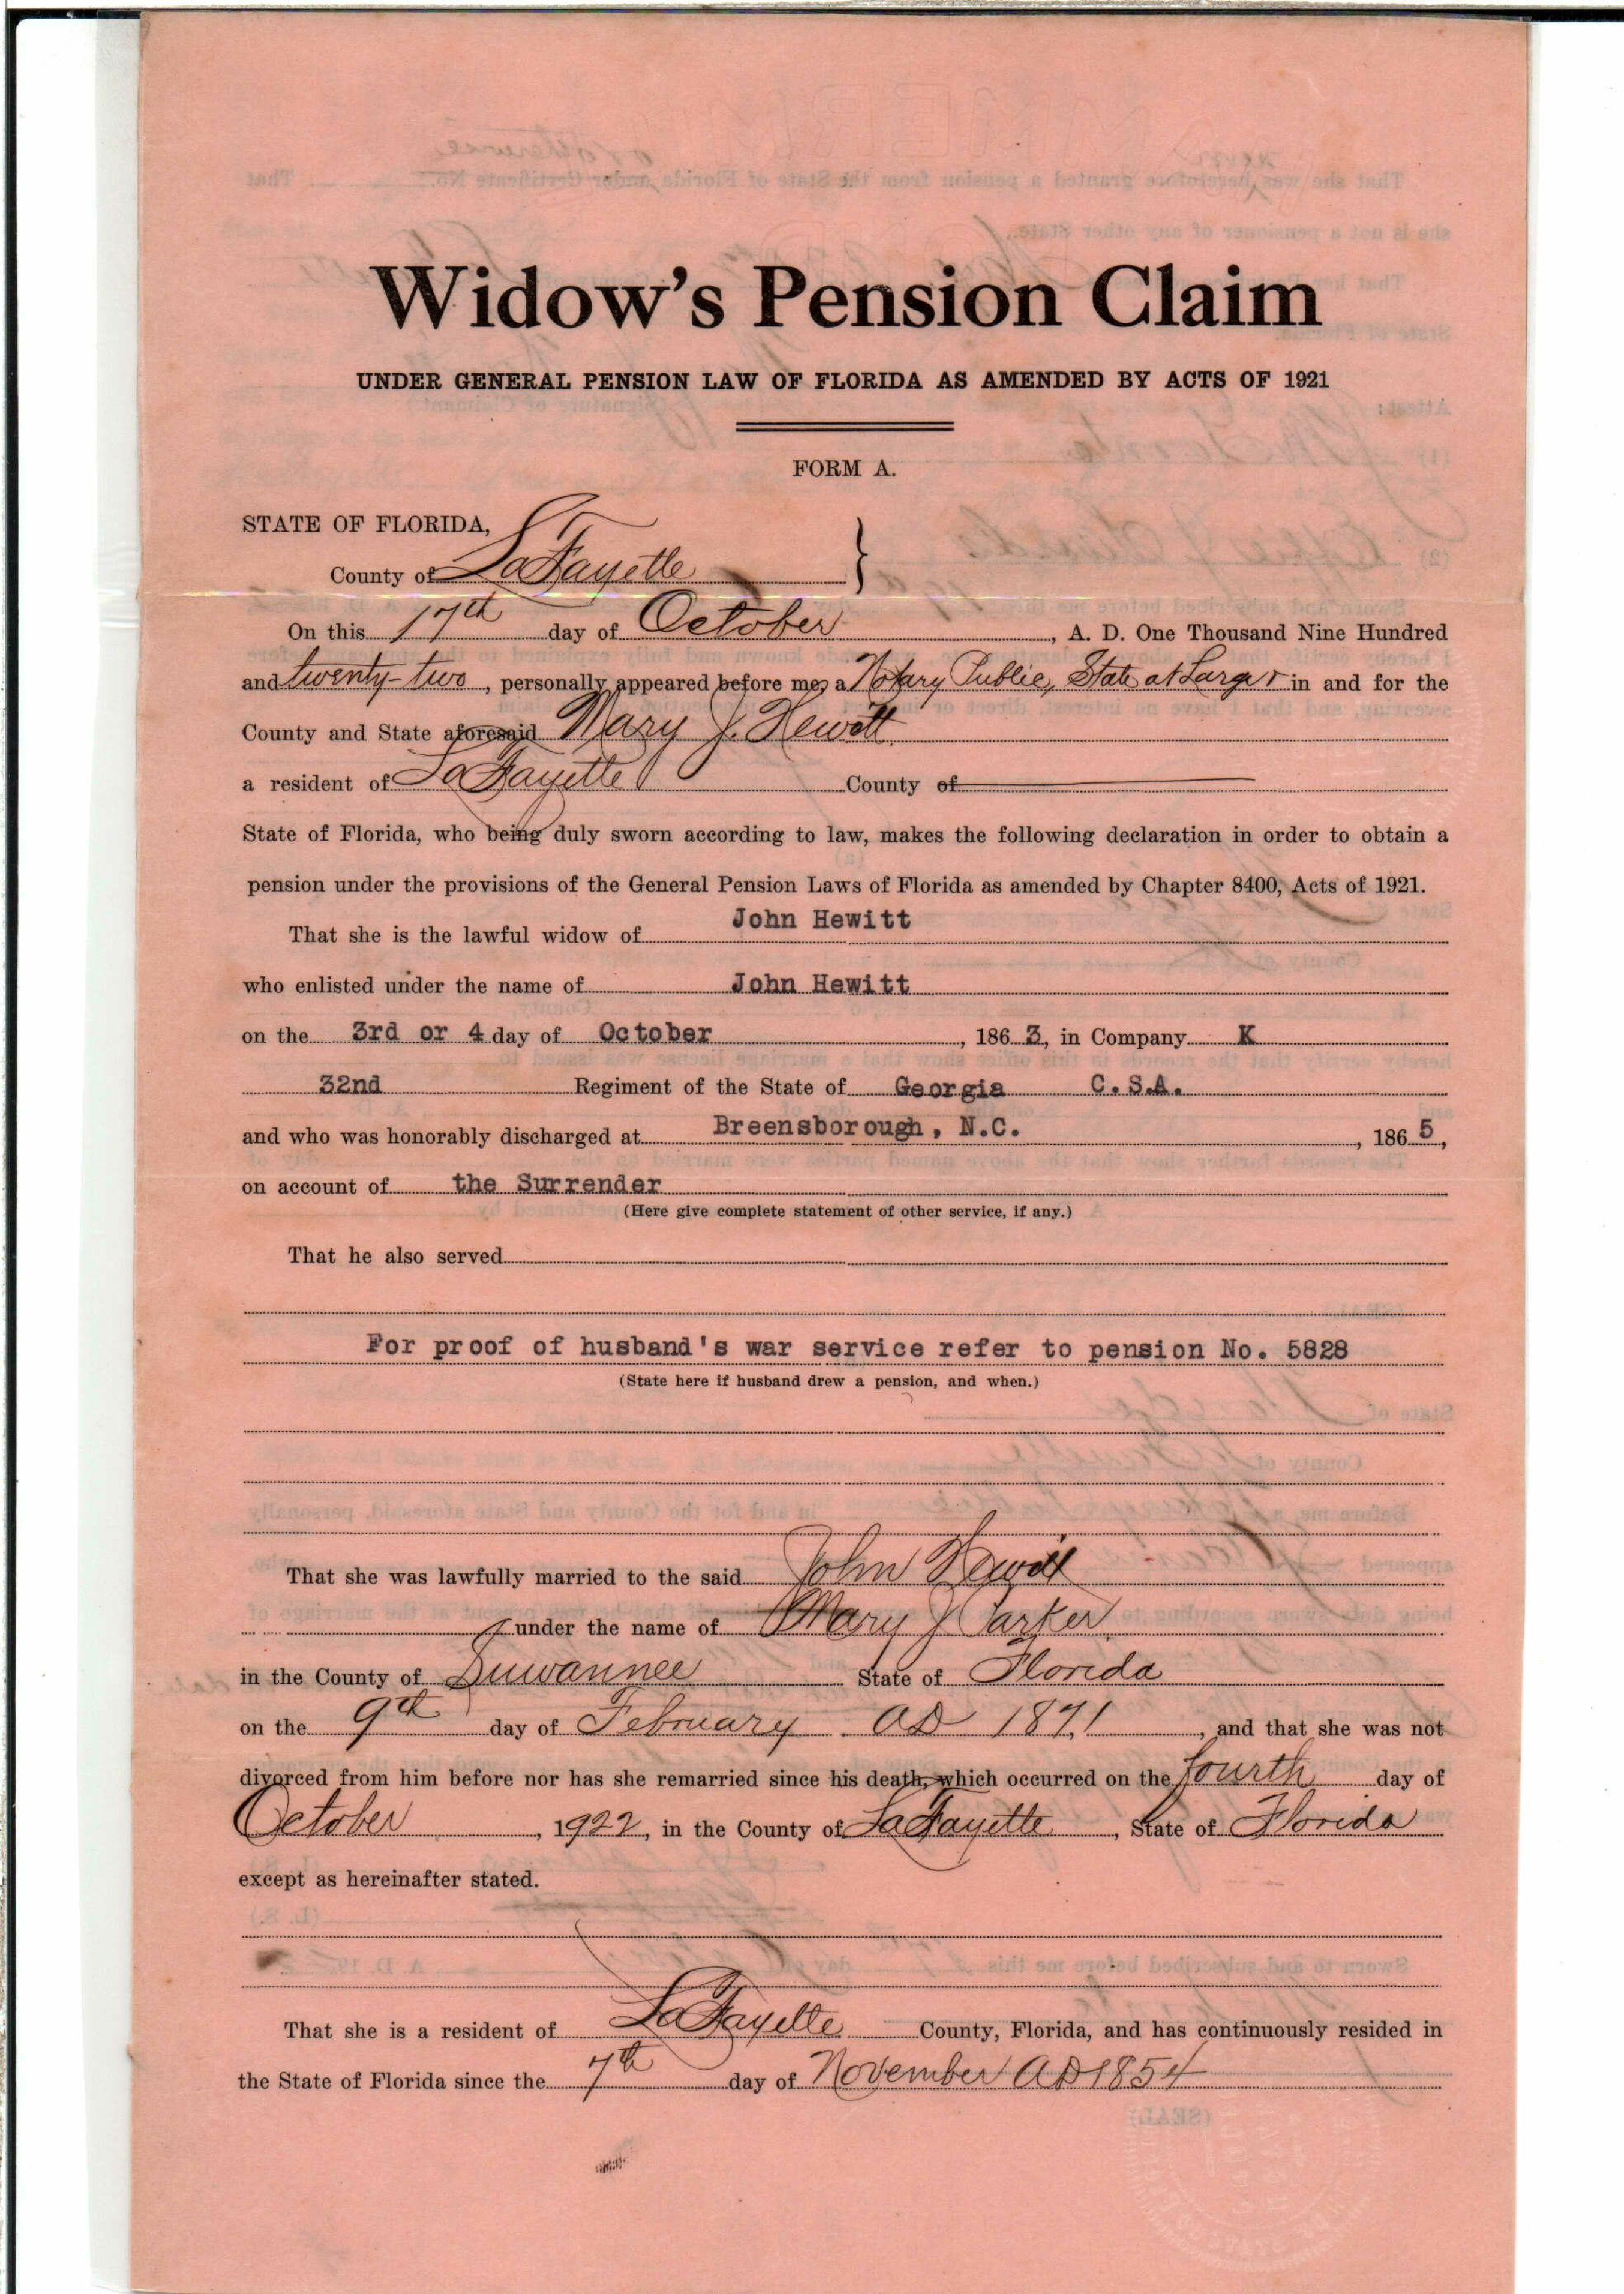 Widow's Pension Claim
UNDER GENERAL PENSION LAW OF FLORIDA AS AMENDED BY ACTS OF 1921
FORM A.
STATE OF FLORIDA,
County of LaFayette }
On this 17th day of October, A. D. One Thousand Nine Hundred
and twenty-two, personally appeared before me, a Notary Public, State at Large in and for the
County and State aforesaid Mary J. Hewitt
a resident of LaFayette County of
State of Florida, who being duly sworn according to law, makes the following declaration in order to obtain a
pension under the provisions of the General Pension Laws of Florida as amended by Chapter 8400, Acts of 1921.
That she is the lawful widow of John Hewitt
who enlisted under the name of John Hewitt
on the 3rd or 4 day of October, 1863, in Company K
32nd Regiment of the State of Georgia C.S.A.
and who was honorably discharged at Breensborough, N.C., 1865,
on account of the Surrender
(Here give complete statement of other service, if any.)
That he also served
For proof of husband's war service refer to pension No. 5828
(State here if husband drew a pension, and when.)
That she was lawfully married to the said John Hewitt
under the name of Mary J Parker
in the County of Suwannee State of Florida
on the 9th day of February AD 1871, and that she was not
divorced from him before nor has she remarried since his death, which occurred on the fourth day of
October, 1922, in the County of LaFayette, State of Florida
except as hereinafter stated.
That she is a resident of LaFayette County, Florida, and has continuously resided in
the State of Florida since the 7th day of November AD 1854